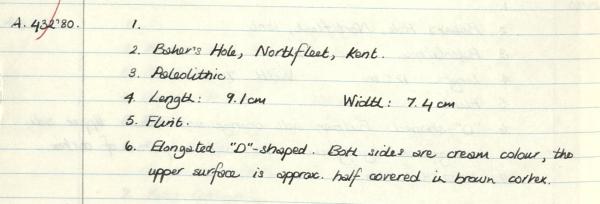 A. 432'80. 1.
2. Baker's Hole, Northfleet, Kent.
3. Paleolithic
4. Length: 9.1cm Width: 7.4 cm
5. Flint.
6. Elongated "D"-shaped. Both sides are cream colour, the
upper surface is approx. half covered in brown cortex.